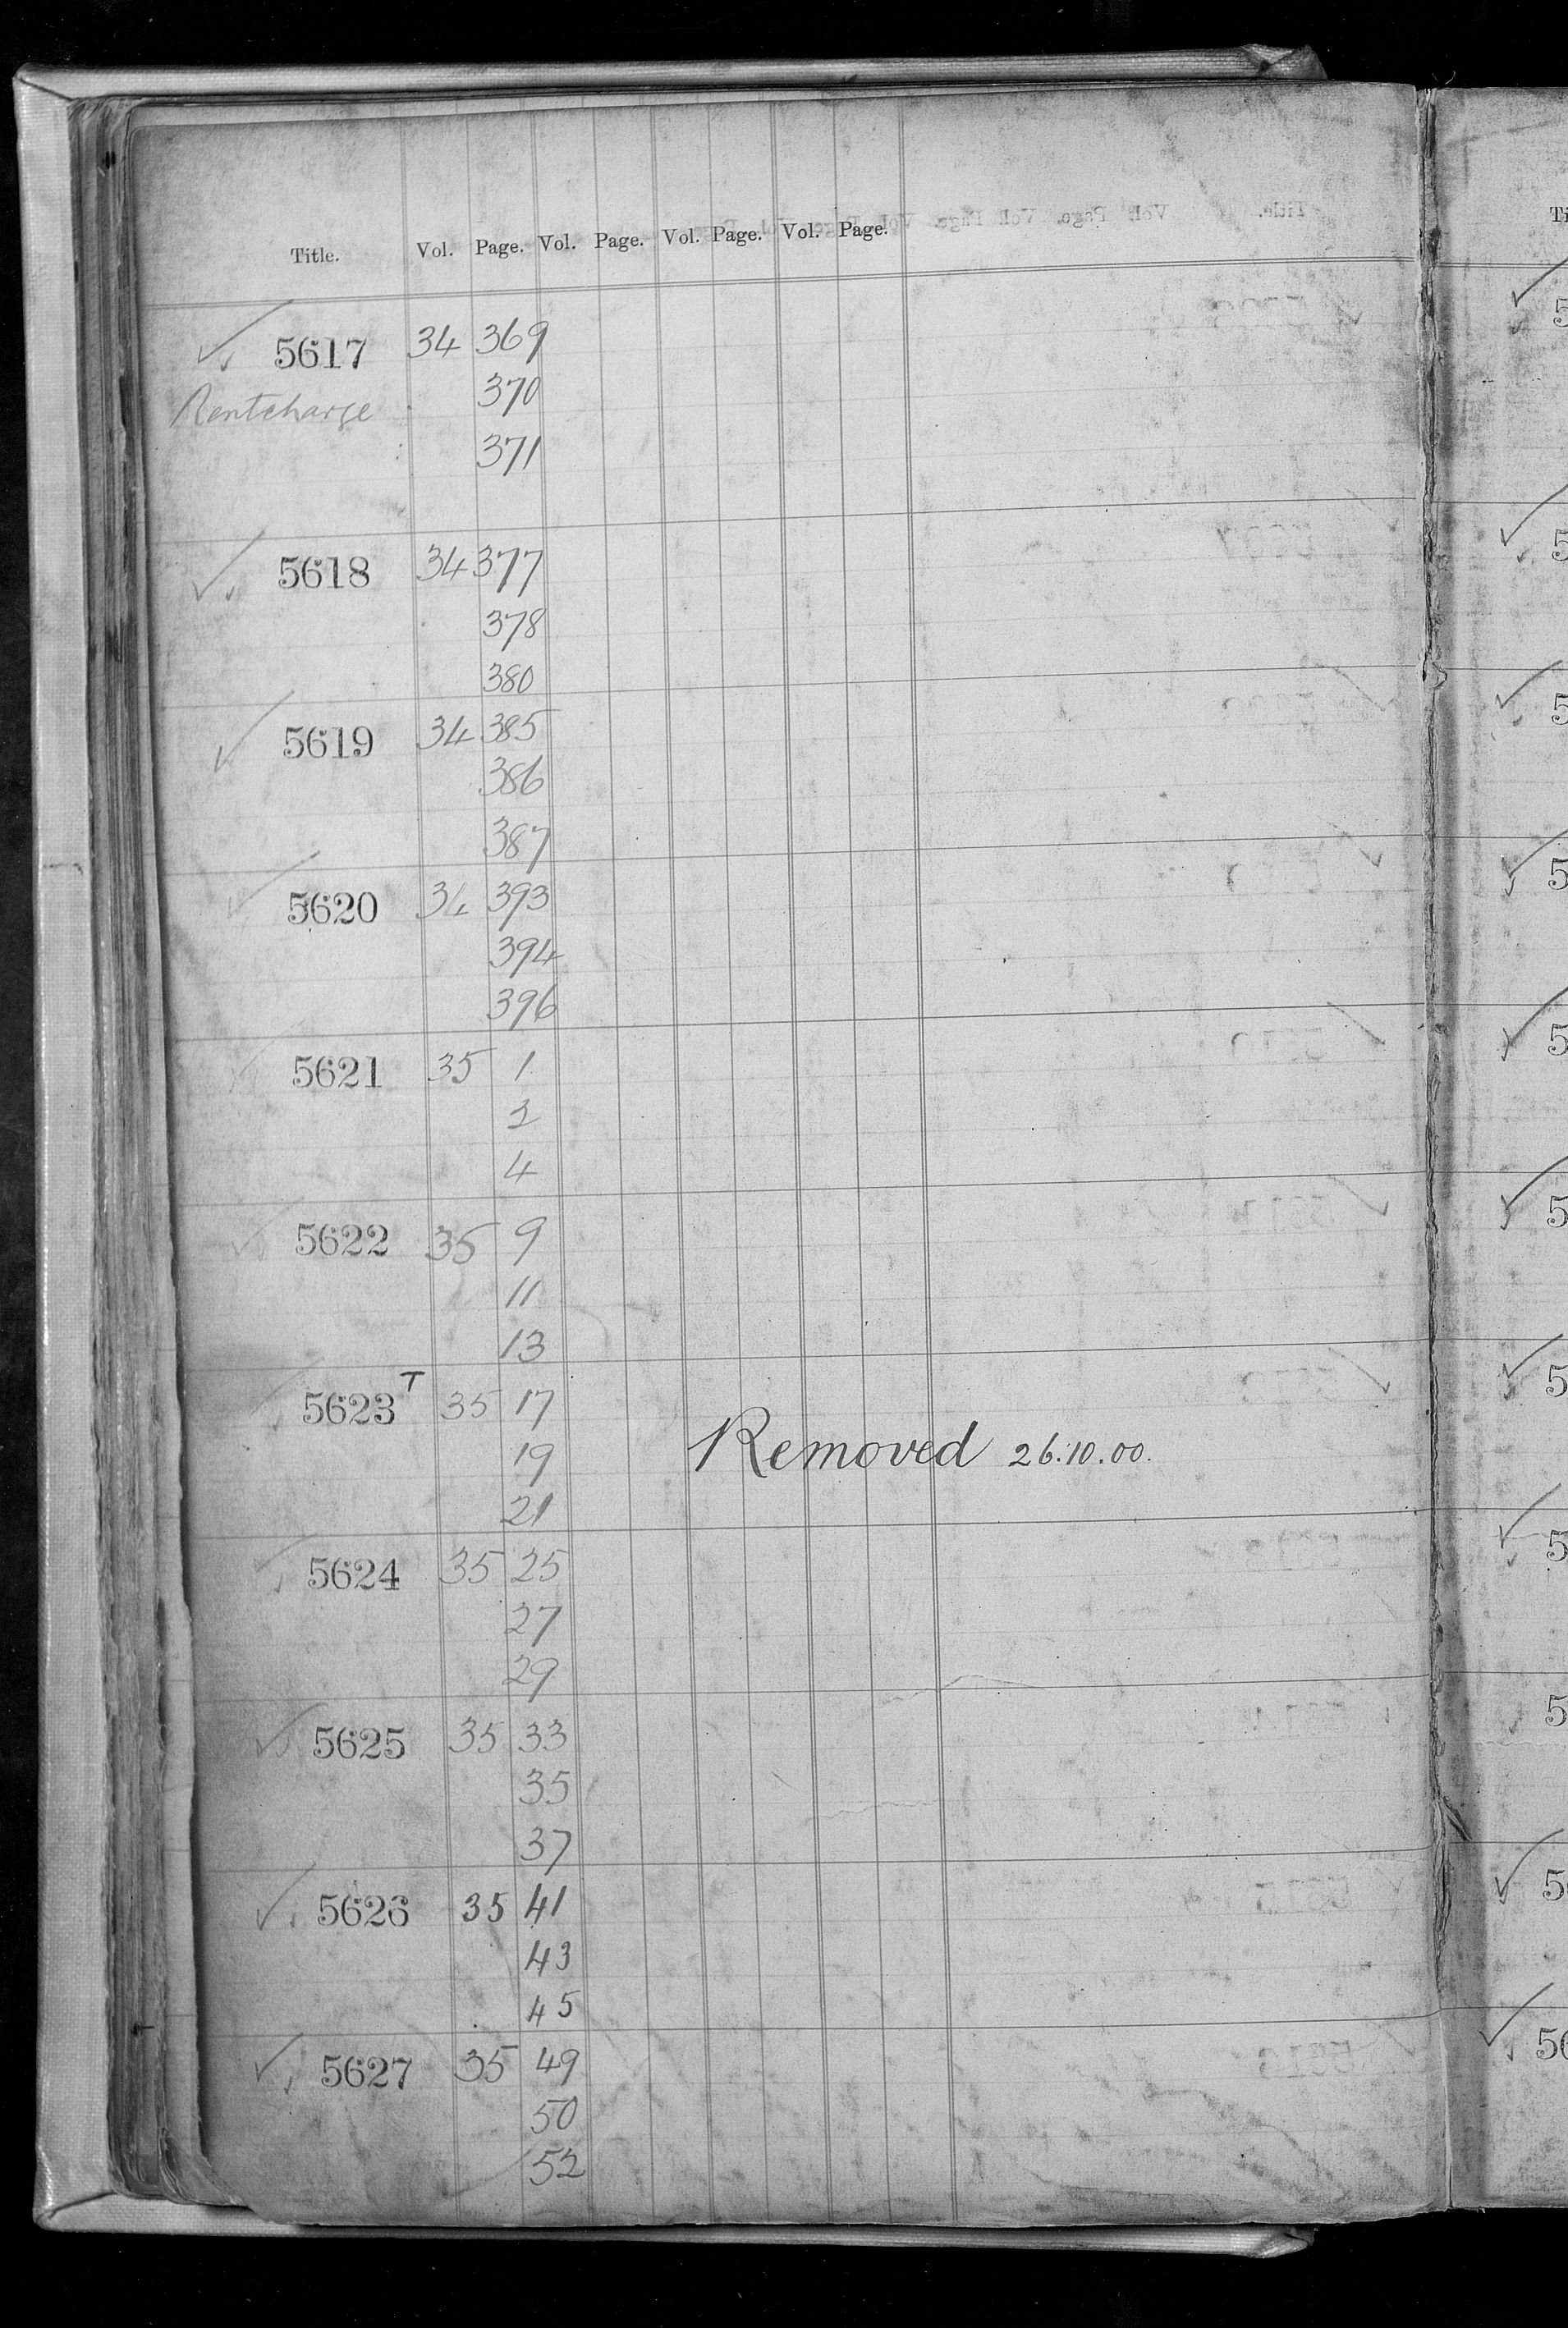 Title. Vol. Page. Vol. Page. Vol. Page. Vol. Page.
5617 34 369
Rentcharge 370
371
5618 34 377
378
380
5619 34 385
386
387
5620 34 393
394
396
5621 35 1
2
4
5622 35 9
11
13
5623 T 35 17
19 Removed 26.10.00.
21
5624 35 25
27
29
5625 35 33
35
37
5626 35 41
43
45
5627 35 49
50
52